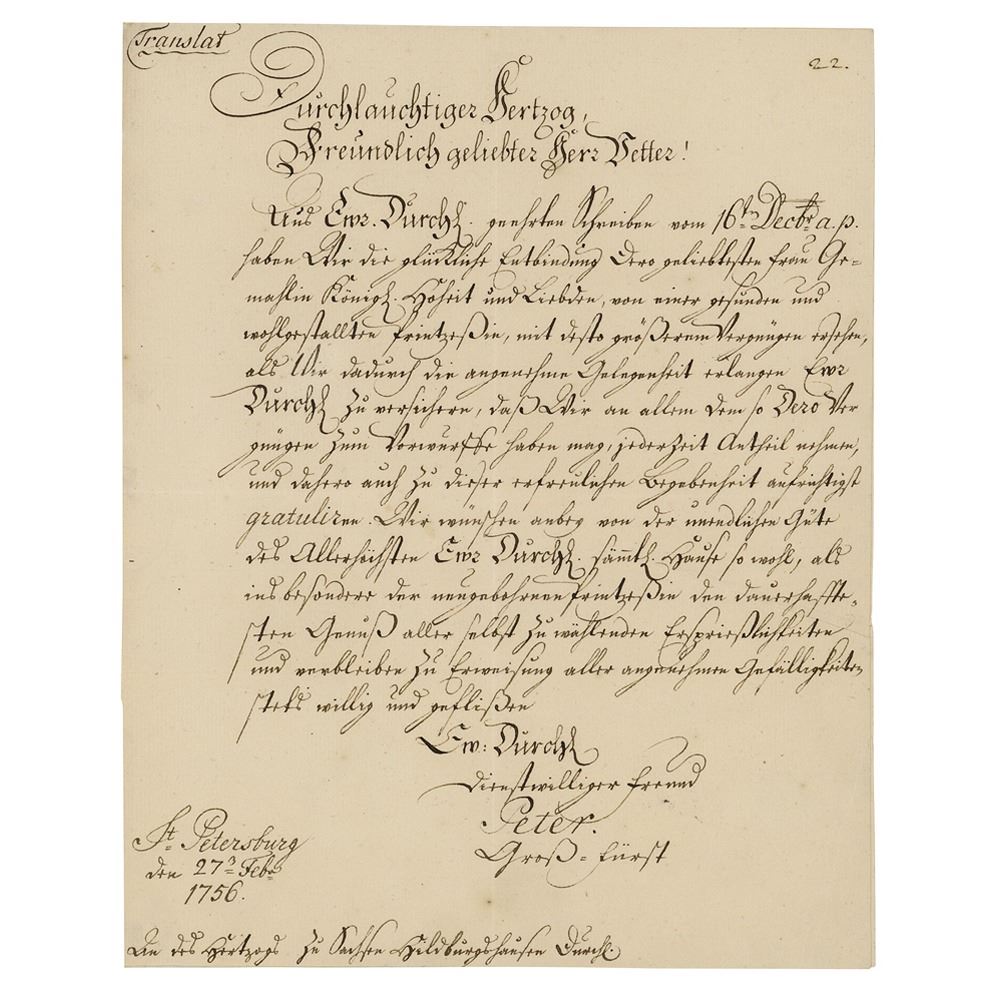 Translat
22.
Durchlauchtiger Hertzog,
Freundlich geliebter Herr Vetter!
Aus Ewr. Durchl. geehrten Schreiben vom 16ten Decbr a. p.
haben Wir die glückliche Entbindung Dero geliebtesten Frau Ge=
mahlin Königl. Hoheit und Liebden, von einer gesunden und
wohlgestallten Printzeßin, mit desto größerem Vergnügen ersehen,
als Wir dadurch die angenehme Gelegenheit erlangen Ewr
Durchl zu versichern, daß Wir an allem dem so Dero Ver
gnügen zum Vorwurffe haben mag, jederzeit Antheil nehmen,
und dahero auch zu dieser erfreulichen Begebenheit aufrichtigst
gratuliren. Wir wünschen anbey von der unendlichen Güte
des Allerhöchsten Ewr Durchl. sämtl. Hause so wohl, als
insbesondere der neugebohrnen Printzeßin den dauerhaffte=
sten Genuß aller selbst zu wählenden Ersprießlichkeiten
und verbleiben zu Erweisung aller angenehmen Gefälligkeiten
stets willig und geflißen
Ew: Durchl
dienstwilliger Freund
Peter.
Groß=Fürst
St. Petersburg
den 27n Febr
1756.
An des Hertzogs zu Sachsen Hildburgshausen Durchl.